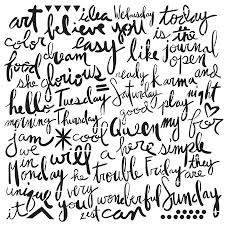 art idea Wednesday today
color believe you is the
dream easy like journal
food glorious open
she ready karma and
hello Tuesday Saturday play night
morning Thursday good
jam cool Queen my for
we will a here simple
in Monday he trouble Friday they
unique you very are
it zest can wonderful Sunday